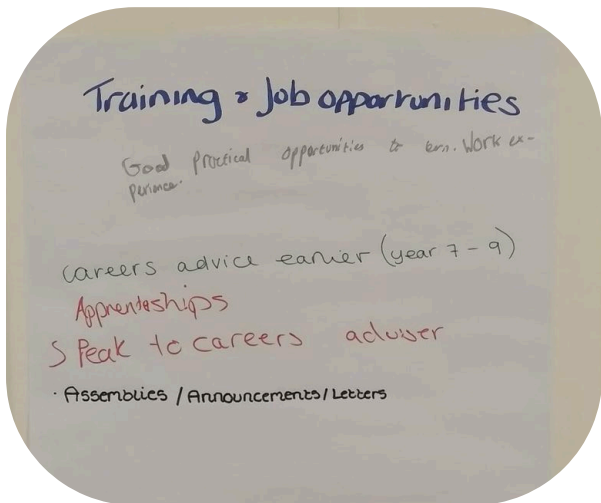 Training & Job opportunities
Good Practical opportunities to ern. Work ex-
perience.
careers advice earlier (year 7 - 9)
Apprenteships
Speak to careers adviser
· Assemblies / Announcements / Letters